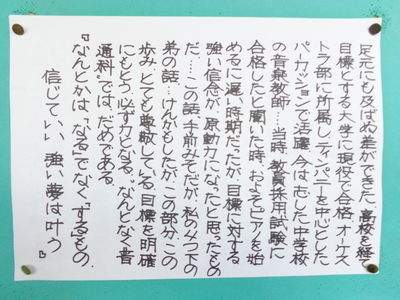 足元にも及ばぬ差ができた。高校を経て
目標とする大学に現役で合格。オーケス
トラ部に所属し、ティンパニーを中心とした
パーカッションで活躍。今は、志した中学校
の音楽教師…当時、教員採用試験に
合格したと聞いた時、およそピアノを始
めるに遅い時期だったが、目標に対する
強い信念が、原動力になったと思ったもの
だ…この話、手前みそだが、私の四つ下の
弟の話…けんかもしたが、この部分、この
歩み、とても尊敬している。目標を明確
にもとう。必ず力となる。なんとなく普
通科ではだめである。
『なんとかは、“なる”でなく“する”もの。
信じていい、強い夢は叶う』